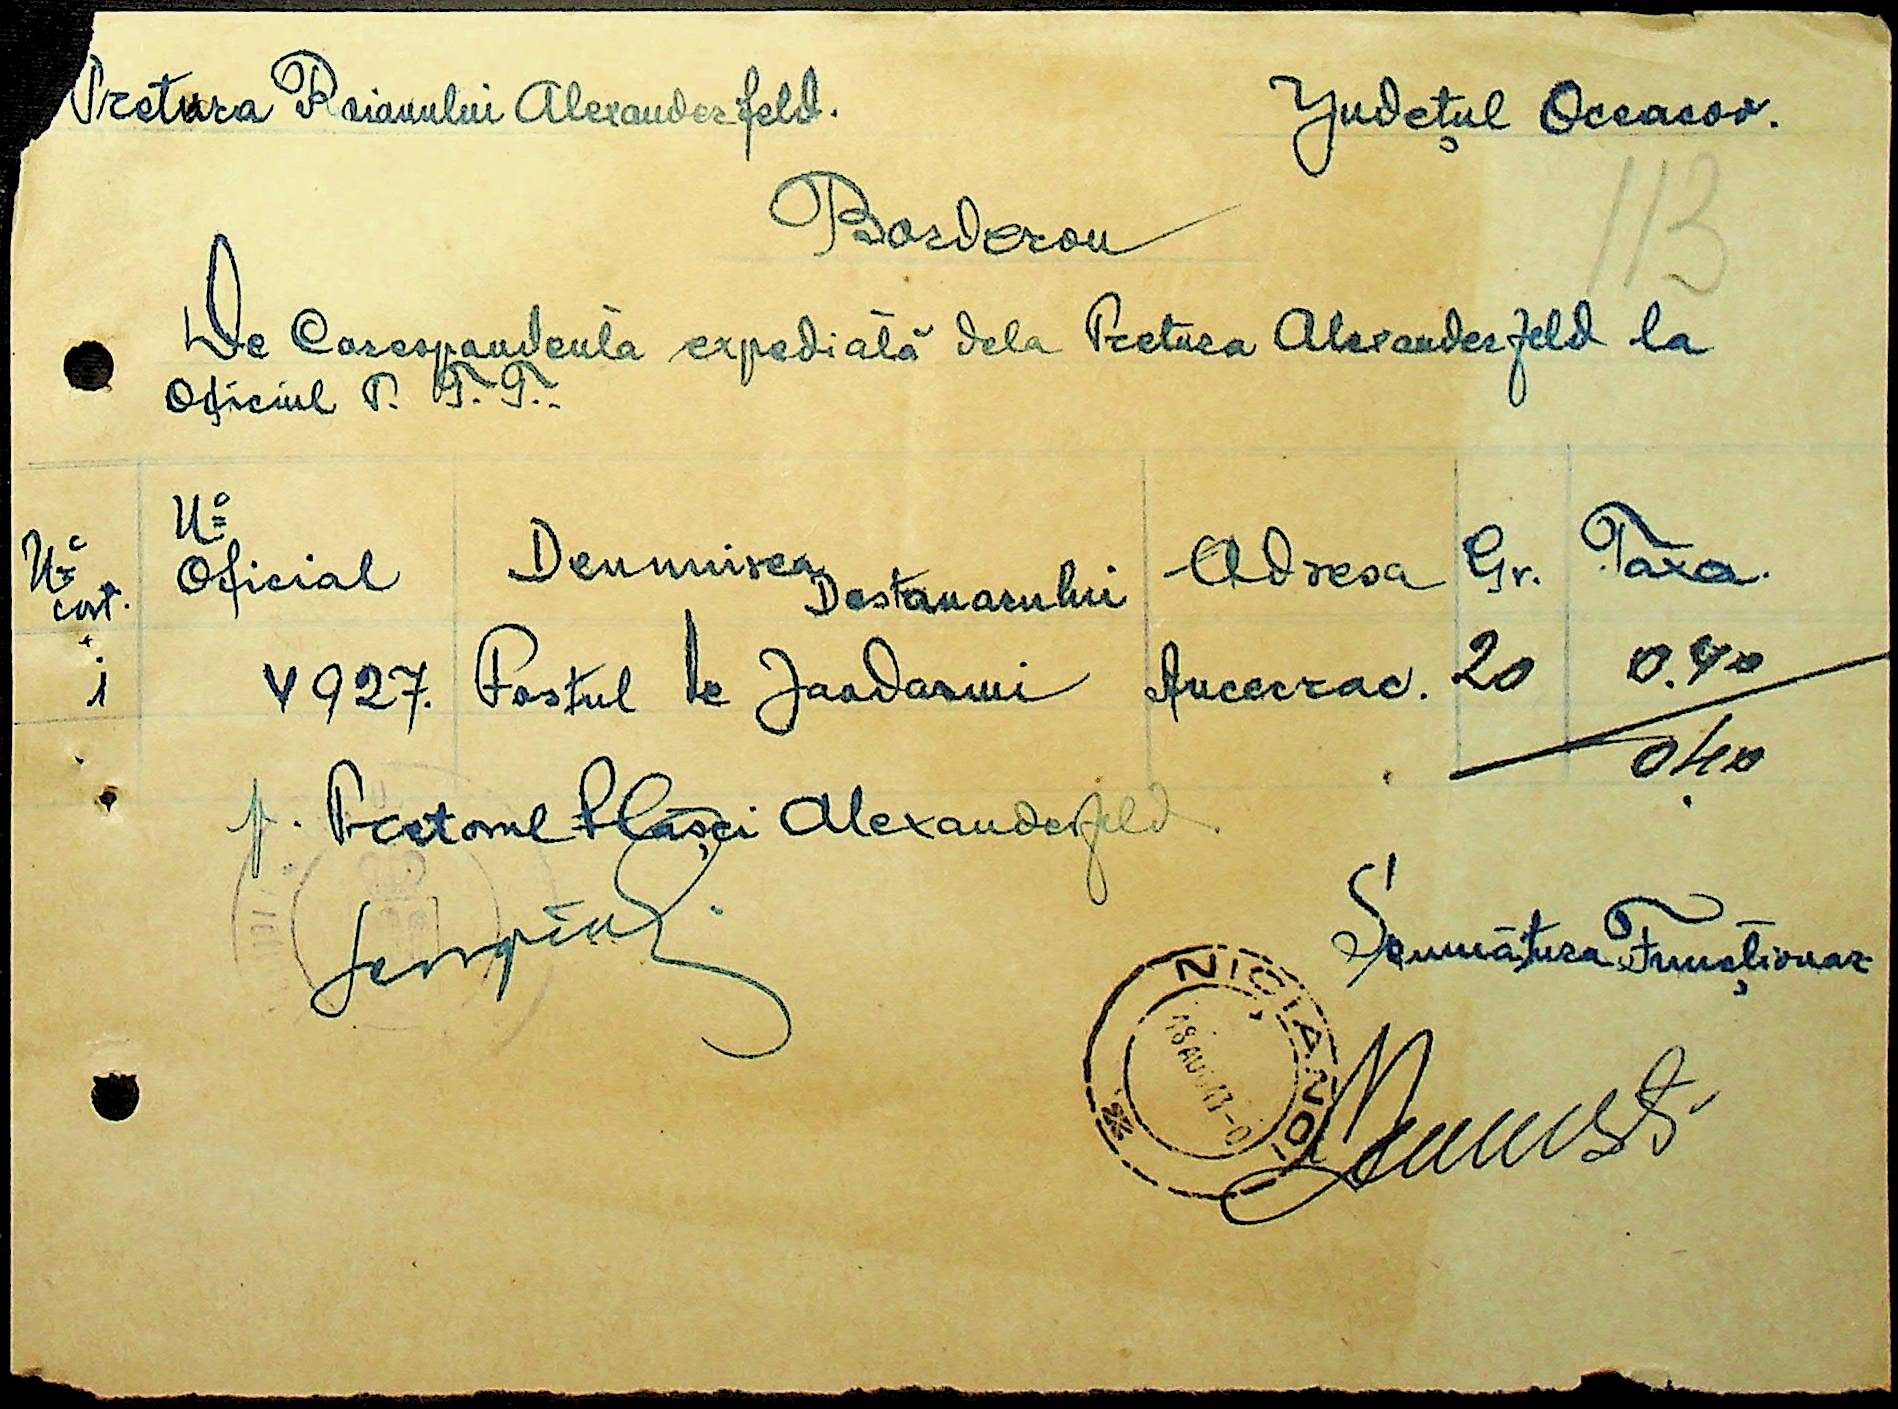 Pretura Raionului Alexanderfeld.
Județul Oceacov.
113
Borderou
De Corespondentă expediată dela Pretura Alexanderfeld la
Oficiul P. T. T.
No crt.
No Oficial
Denumirea Destanarului
Adresa
Gr.
Taxa.
1
4927.
Postul de Jandarmi
Ancecrac.
20
0.40
040
p. Pretorul Plășei Alexanderfeld.
Semnătura Funcționar
NICIANOI
18 AUG 43-0